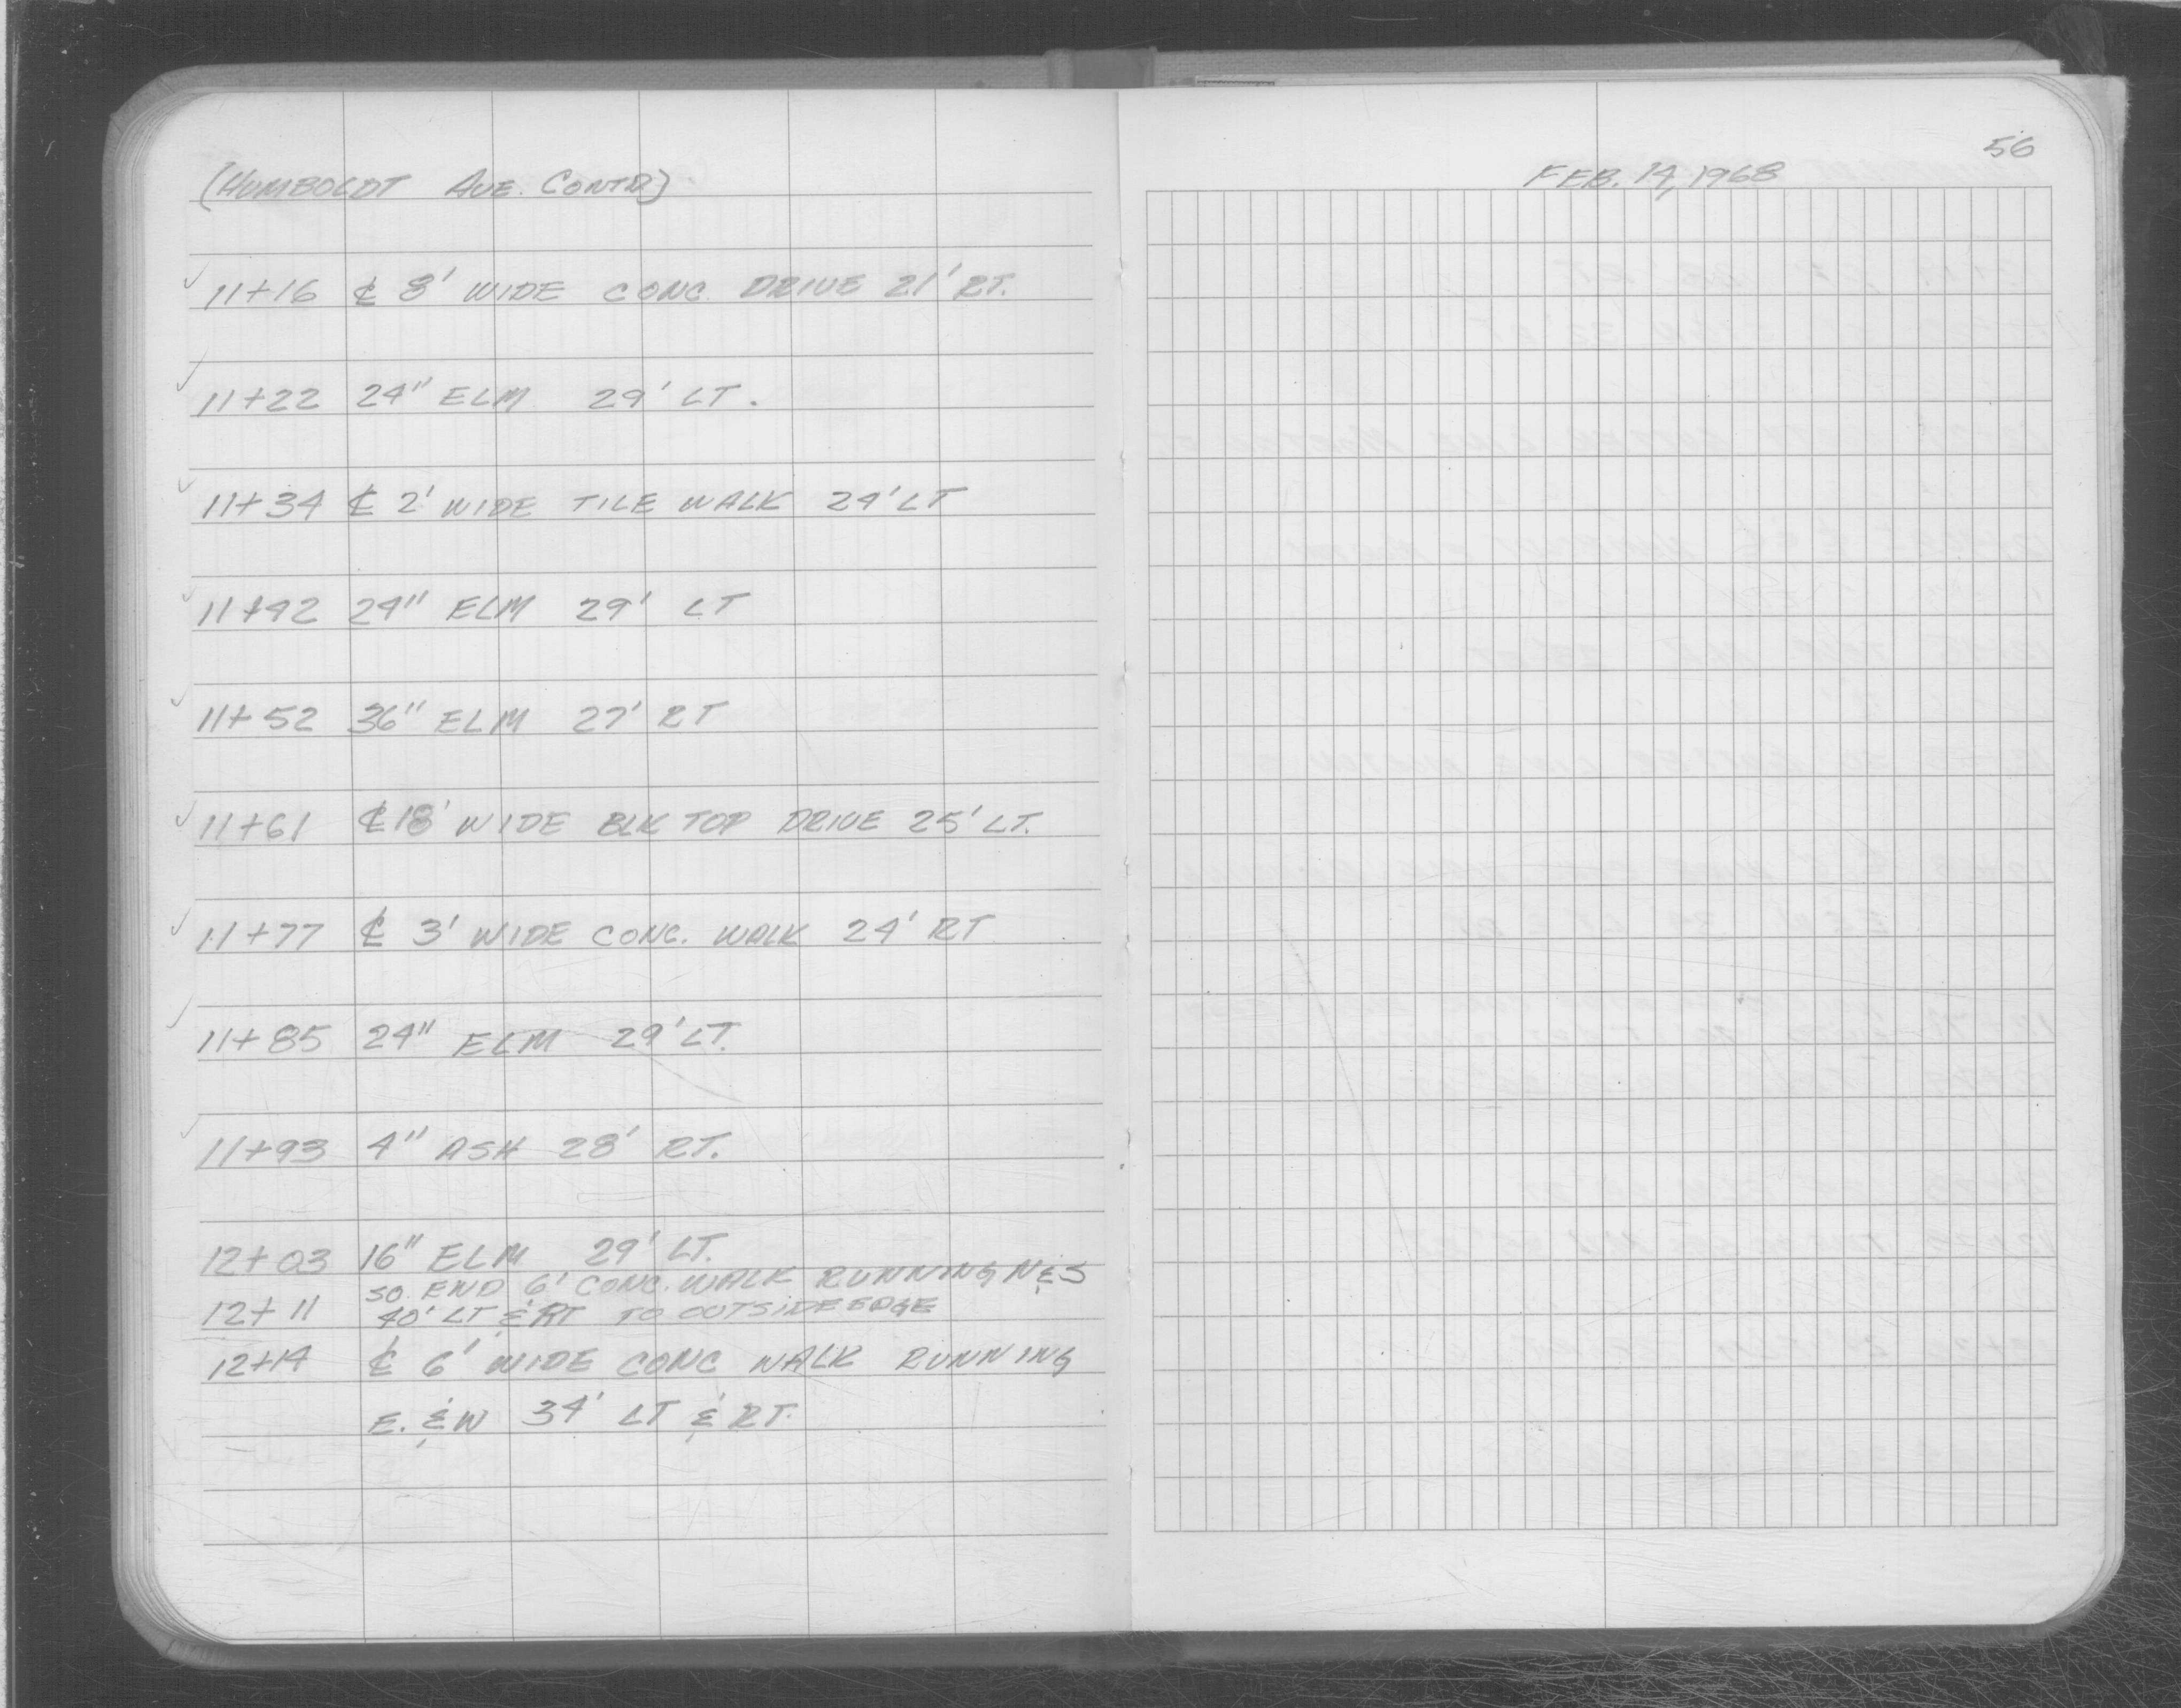 (HUMBOLDT AVE. CONTD)
✓ 11+16 ℄ 8' WIDE CONC. DRIVE 21' RT.
✓ 11+22 24" ELM 29' LT.
✓ 11+34 ℄ 2' WIDE TILE WALK 24' LT
✓ 11+42 24" ELM 29' LT
✓ 11+52 36" ELM 27' RT
✓ 11+61 ℄ 18' WIDE BLK TOP DRIVE 25' LT.
✓ 11+77 ℄ 3' WIDE CONC. WALK 24' RT
✓ 11+85 24" ELM 29' LT.
✓ 11+93 4" ASH 28' RT.
12+03 16" ELM 29' LT.
SO. END 6' CONC. WALK RUNNING N&S
12+11 40' LT & RT TO OUTSIDE EDGE
12+14 ℄ 6' WIDE CONC WALK RUNNING
E. & W 34' LT & RT.
56
FEB. 14, 1968